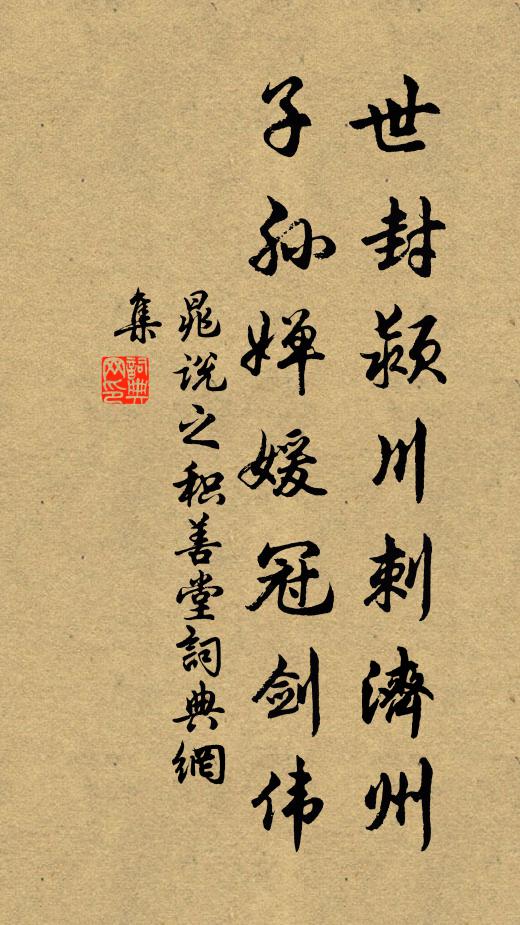 世封颍川刺濟州
子孙婵媛冠剑伟
晁说之积善堂詞典網
集
詞典
网印